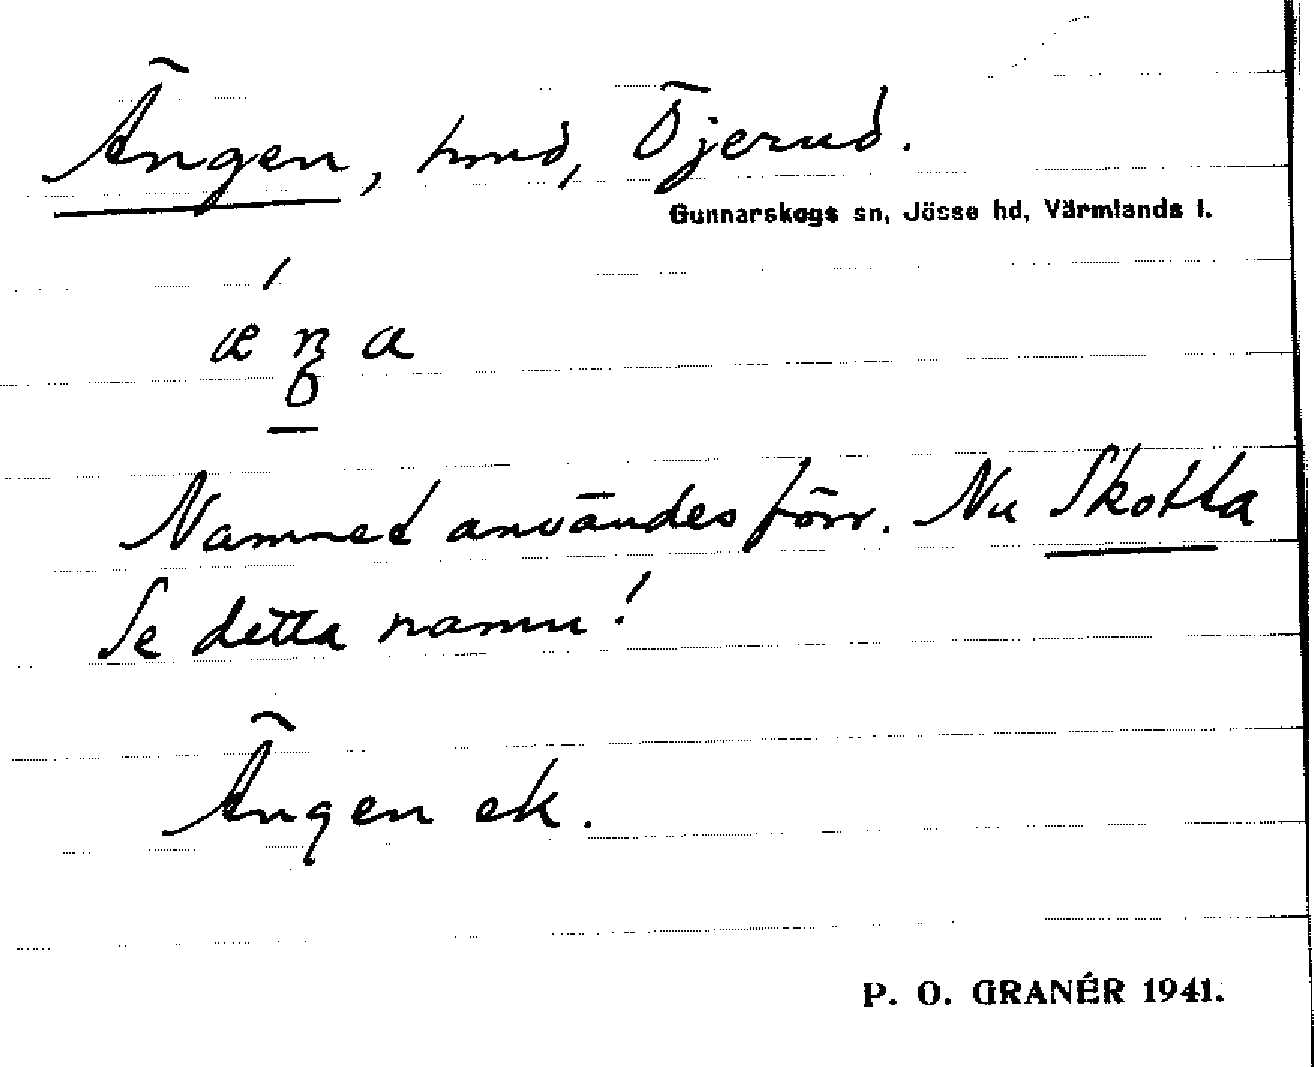 Ängen, hmd, Öjerud.
Gunnarskogs sn, Jösse hd, Värmlands l.
Namnet användes förr. Nu Skotta
Se detta namn!
Ängen ek.
P. O. GRANÉR 1941.